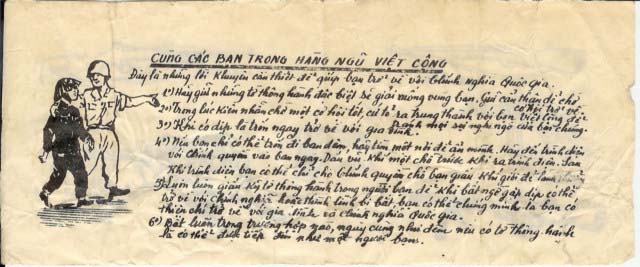 CÙNG CÁC BẠN TRONG HÀNG NGŨ VIỆT CỘNG
Đây là những lời khuyên cần thiết để giúp bạn trở về với Chính nghĩa Quốc gia.
1º) Hãy giữ những tờ thông hành đặc biệt rải xuống vùng bạn. Giữ cẩn thận để chờ cơ hội trở về.
2º) Trong lúc kiên nhẫn chờ một cơ hội tốt, cứ tỏ ra trung thành với bọn Việt cộng để tránh mọi sự nghi ngờ của bọn chúng.
3º) Khi có dịp là trốn ngay trở về với gia đình.
4º) Nếu bạn chỉ có thể trốn đi ban đêm, hãy tìm một nơi để ẩn mình. Hãy đến trình diện
với Chính quyền vào ban ngày. Dấu vũ khí một chỗ trước khi ra trình diện. Sau
khi trình diện bạn có thể chỉ cho Chính quyền chỗ bạn giấu khí giới để lãnh thưởng.
5º) Luôn luôn giấu kỹ tờ thông hành trong người bạn để khi bất ngờ gặp dịp có thể
trở về với chính nghĩa hoặc thình lình bị bắt, bạn có thể chứng minh là bạn có
thiện chí trở về với gia đình và chính nghĩa Quốc gia.
6º) Bất luận trong trường hợp nào, ngay cùng nhiều đêm nếu có tờ thông hành
là có thể được tiếp đón như một người bạn.